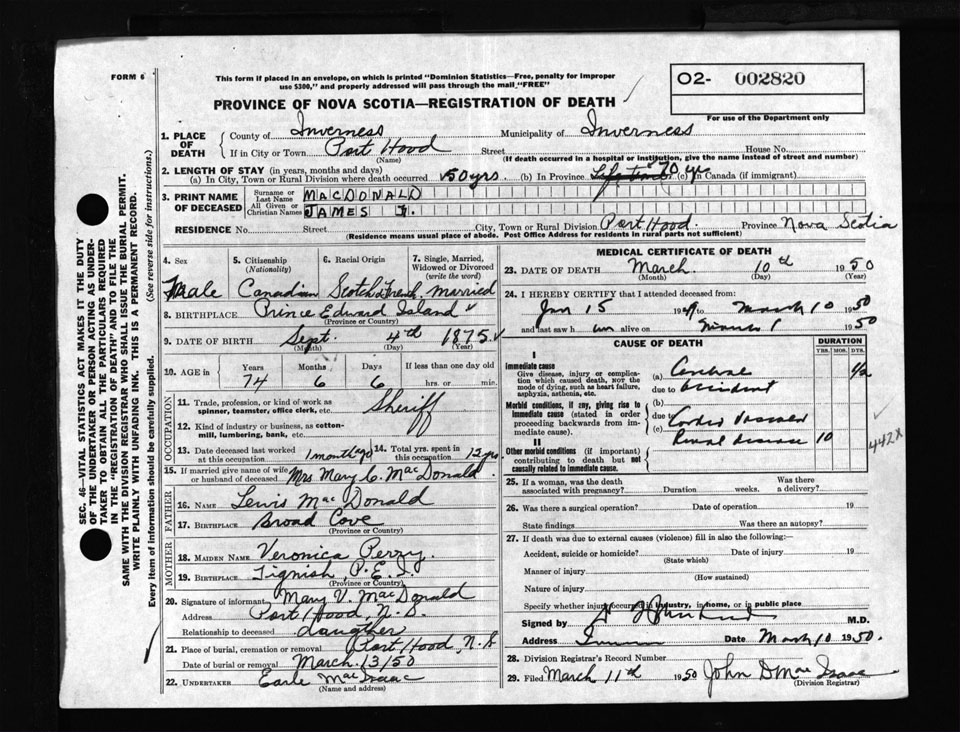 FORM 6
This form if placed in an envelope, on which is printed "Dominion Statistics—Free, penalty for improper
use $300," and properly addressed will pass through the mail "FREE"
O2- 002820
For use of the Department only
PROVINCE OF NOVA SCOTIA—REGISTRATION OF DEATH
1. PLACE OF DEATH County of Inverness Municipality of Inverness
If in City or Town Port Hood Street House No.
(Name) (If death occurred in a hospital or institution, give the name instead of street and number)
2. LENGTH OF STAY (in years, months and days)
(a) In City, Town or Rural Division where death occurred 50 yrs (b) In Province Life time 70 yrs (c) In Canada (if immigrant)
3. PRINT NAME OF DECEASED Surname or Last Name MACDONALD
All Given or Christian Names JAMES J.
RESIDENCE No. Street City, Town or Rural Division Port Hood. Province Nova Scotia
(Residence means usual place of abode. Post Office Address for residents in rural parts not sufficient)
4. Sex 5. Citizenship (Nationality) 6. Racial Origin 7. Single, Married, Widowed or Divorced (write the word)
Male Canadian Scotch & French married
8. BIRTHPLACE Prince Edward Island
(Province or Country)
9. DATE OF BIRTH Sept. 4th 1875
(Month) (Day) (Year)
10. AGE in Years Months Days If less than one day old
74 6 6 hrs. or min.
OCCUPATION
11. Trade, profession or kind of work as spinner, teamster, office clerk, etc. Sheriff
12. Kind of industry or business, as cotton-mill, lumbering, bank, etc.
13. Date deceased last worked at this occupation 1 month ago 14. Total yrs. spent in this occupation 12 yrs.
15. If married give name of wife or husband of deceased Mrs Mary C. MacDonald
FATHER
16. Name Lewis MacDonald
17. BIRTHPLACE Broad Cove
(Province or Country)
MOTHER
18. MAIDEN NAME Veronica Perry.
19. BIRTHPLACE Tignish, P.E.I.
(Province or Country)
20. Signature of informant Mary V. MacDonald
Address Port Hood, N.S.
Relationship to deceased daughter
21. Place of burial, cremation or removal Port Hood, N.S
Date of burial or removal March 13/50
22. UNDERTAKER Earle MacIsaac
(Name and address)
MEDICAL CERTIFICATE OF DEATH
23. DATE OF DEATH March 10th 1950
(Month) (Day)
24. I HEREBY CERTIFY that I attended deceased from:
Jan 15 1949 to March 10 1950
and last saw h im alive on March 1 1950
CAUSE OF DEATH DURATION
YRS. MOS. DYS.
I
Immediate cause
Give disease, injury or complication which caused death, NOT the mode of dying, such as heart failure, asphyxia, asthenia, etc.
(a) Cerebral
due to accident
Morbid conditions, if any, giving rise to immediate cause (stated in order proceeding backwards from immediate cause).
(b)
due to Cardio Vascular
(c) Renal disease 10
442X
II
Other morbid conditions (if important) contributing to death but not causally related to immediate cause.
25. If a woman, was the death associated with pregnancy? Duration weeks. Was there a delivery?
26. Was there a surgical operation? Date of operation 19
State findings Was there an autopsy?
27. If death was due to external causes (violence) fill in also the following:—
Accident, suicide or homicide? Date of injury 19
(State which)
Manner of injury
(How sustained)
Nature of injury
Specify whether injury occurred in industry, in home, or in public place
Signed by M.D.
Address Date March 10 1950.
28. Division Registrar's Record Number
29. Filed March 11th 1950 John D MacIsaac
(Division Registrar)
SEC. 46—VITAL STATISTICS ACT MAKES IT THE DUTY
OF THE UNDERTAKER OR PERSON ACTING AS UNDER-
TAKER TO OBTAIN ALL THE PARTICULARS REQUIRED
IN THE "REGISTRATION OF DEATH" AND TO FILE THE
SAME WITH THE DIVISION REGISTRAR WHO SHALL ISSUE THE BURIAL PERMIT.
WRITE PLAINLY WITH UNFADING INK. THIS IS A PERMANENT RECORD.
Every item of information should be carefully supplied. (See reverse side for instructions.)